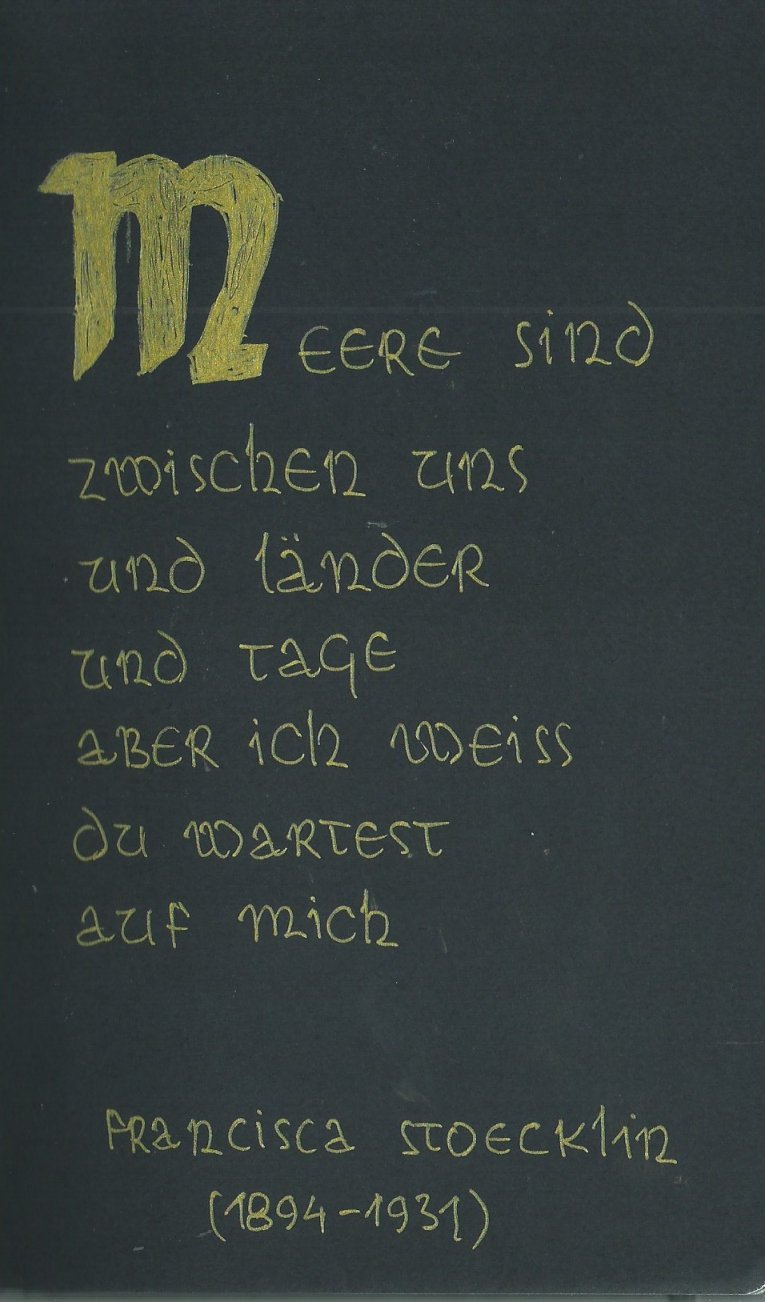 Meere sind
zwischen uns
und länder
und tage
aber ich weiss
du wartest
auf mich
Francisca Stoecklin
(1894-1931)